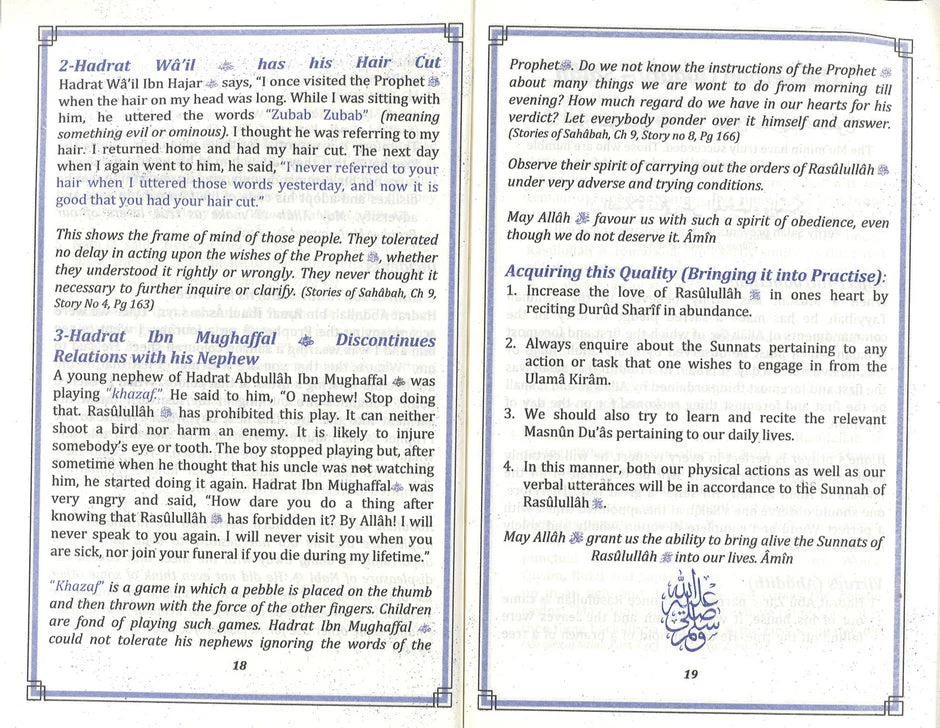 2-Hadrat Wâ'il has his Hair Cut
Hadrat Wâ'il Ibn Hajar says, "I once visited the Prophet ﷺ
when the hair on my head was long. While I was sitting with
him, he uttered the words "Zubab Zubab" (meaning
something evil or ominous). I thought he was referring to my
hair. I returned home and had my hair cut. The next day
when I again went to him, he said, "I never referred to your
hair when I uttered those words yesterday, and now it is
good that you had your hair cut."
This shows the frame of mind of those people. They tolerated
no delay in acting upon the wishes of the Prophet ﷺ, whether
they understood it rightly or wrongly. They never thought it
necessary to further inquire or clarify. (Stories of Sahâbah, Ch 9,
Story No 4, Pg 163)
3-Hadrat Ibn Mughaffal Discontinues
Relations with his Nephew
A young nephew of Hadrat Abdullâh Ibn Mughaffal was
playing "khazaf." He said to him, "O nephew! Stop doing
that. Rasûlullâh ﷺ has prohibited this play. It can neither
shoot a bird nor harm an enemy. It is likely to injure
somebody's eye or tooth. The boy stopped playing but, after
sometime when he thought that his uncle was not watching
him, he started doing it again. Hadrat Ibn Mughaffal was
very angry and said, "How dare you do a thing after
knowing that Rasûlullâh ﷺ has forbidden it? By Allâh! I will
never speak to you again. I will never visit you when you
are sick, nor join your funeral if you die during my lifetime."
"Khazaf" is a game in which a pebble is placed on the thumb
and then thrown with the force of the other fingers. Children
are fond of playing such games. Hadrat Ibn Mughaffal
could not tolerate his nephews ignoring the words of the
18
Prophet ﷺ. Do we not know the instructions of the Prophet ﷺ
about many things we are wont to do from morning till
evening? How much regard do we have in our hearts for his
verdict? Let everybody ponder over it himself and answer.
(Stories of Sahâbah, Ch 9, Story no 8, Pg 166)
Observe their spirit of carrying out the orders of Rasûlullâh ﷺ
under very adverse and trying conditions.
May Allâh favour us with such a spirit of obedience, even
though we do not deserve it. Âmîn
Acquiring this Quality (Bringing it into Practise):
1. Increase the love of Rasûlullâh ﷺ in ones heart by
reciting Durûd Sharîf in abundance.
2. Always enquire about the Sunnats pertaining to any
action or task that one wishes to engage in from the
Ulamâ Kirâm.
3. We should also try to learn and recite the relevant
Masnûn Du'âs pertaining to our daily lives.
4. In this manner, both our physical actions as well as our
verbal utterances will be in accordance to the Sunnah of
Rasûlullâh ﷺ.
May Allâh grant us the ability to bring alive the Sunnats of
Rasûlullâh ﷺ into our lives. Âmîn
صلى الله عليه وسلم
19